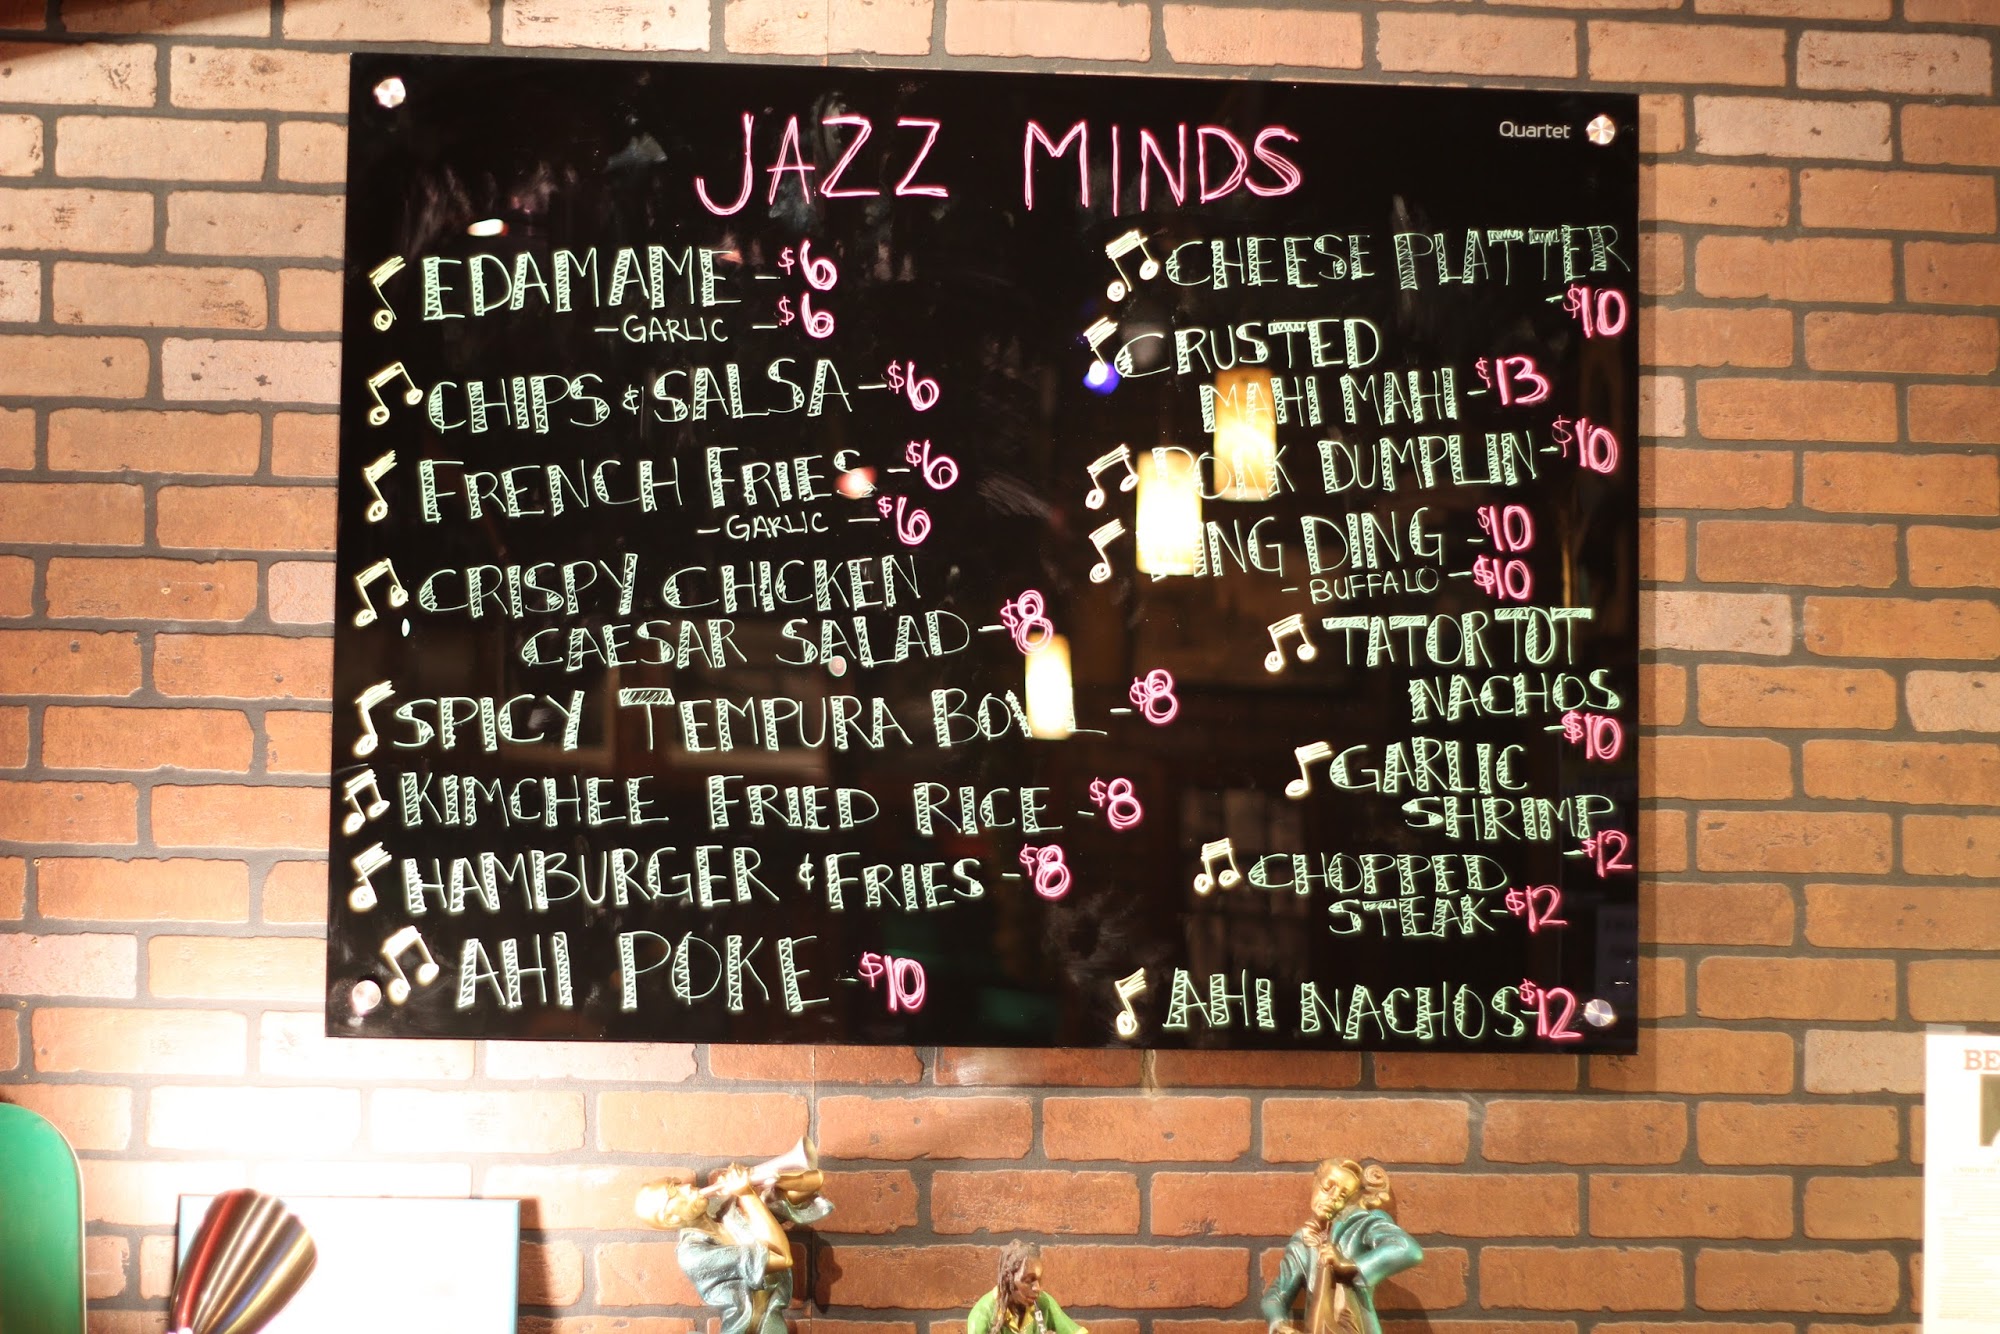 JAZZ MINDS
Quartet
EDAMAME - $6
- GARLIC - $6
CHIPS & SALSA - $6
FRENCH FRIES - $6
- GARLIC - $6
CRISPY CHICKEN
CAESAR SALAD - $8
SPICY TEMPURA BOWL - $8
KIMCHEE FRIED RICE - $8
HAMBURGER & FRIES - $8
AHI POKE - $10
CHEESE PLATTER
- $10
CRUSTED
MAHI MAHI - $13
PORK DUMPLIN - $10
DING - $10
- BUFFALO - $10
TATOR TOT
NACHOS
- $10
GARLIC
SHRIMP
- $12
CHOPPED
STEAK - $12
AHI NACHOS - $12
BE